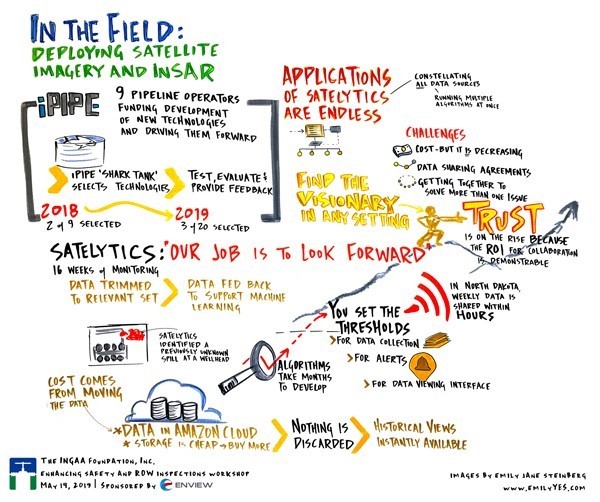 IN THE FIELD:
DEPLOYING SATELLITE
IMAGERY AND INSAR
iPIPE
9 PIPELINE OPERATORS
FUNDING DEVELOPMENT
OF NEW TECHNOLOGIES
AND DRIVING THEM FORWARD
iPIPE 'SHARK TANK'
SELECTS TECHNOLOGIES
TEST, EVALUATE &
PROVIDE FEEDBACK
2018
2 of 9 SELECTED
2019
3 of 20 SELECTED
APPLICATIONS
OF SATELYTICS
ARE ENDLESS
CONSTELLATING
ALL DATA SOURCES
RUNNING MULTIPLE
ALGORITHMS AT ONCE
CHALLENGES
COST - BUT IT IS DECREASING
DATA SHARING AGREEMENTS
GETTING TOGETHER TO
SOLVE MORE THAN ONE ISSUE
FIND THE
VISIONARY
IN ANY SETTING
TRUST
IS ON THE RISE BECAUSE
THE ROI FOR COLLABORATION
IS DEMONSTRABLE
SATELYTICS: "OUR JOB IS TO LOOK FORWARD"
16 WEEKS of MONITORING
DATA TRIMMED
TO RELEVANT SET
DATA FED BACK
TO SUPPORT MACHINE
LEARNING
SATELYTICS
IDENTIFIED A
PREVIOUSLY UNKNOWN
SPILL AT A WELLHEAD
ALGORITHMS
TAKE MONTHS
TO DEVELOP
YOU SET THE
THRESHOLDS
FOR DATA COLLECTION
FOR ALERTS
FOR DATA VIEWING INTERFACE
IN NORTH DAKOTA,
WEEKLY DATA IS
SHARED WITHIN
HOURS
COST COMES
FROM MOVING
THE DATA
* DATA IN AMAZON CLOUD
* STORAGE IS CHEAP → BUY MORE
NOTHING IS
DISCARDED
HISTORICAL VIEWS
INSTANTLY AVAILABLE
THE INGAA FOUNDATION, INC.
ENHANCING SAFETY AND ROW INSPECTIONS WORKSHOP
MAY 14, 2019 | SPONSORED BY ENVIEW
IMAGES BY EMILY JANE STEINBERG
WWW.EMILYYES.COM